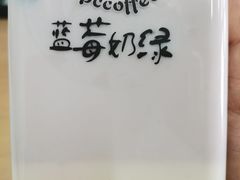 pccoffee
蓝莓奶绿